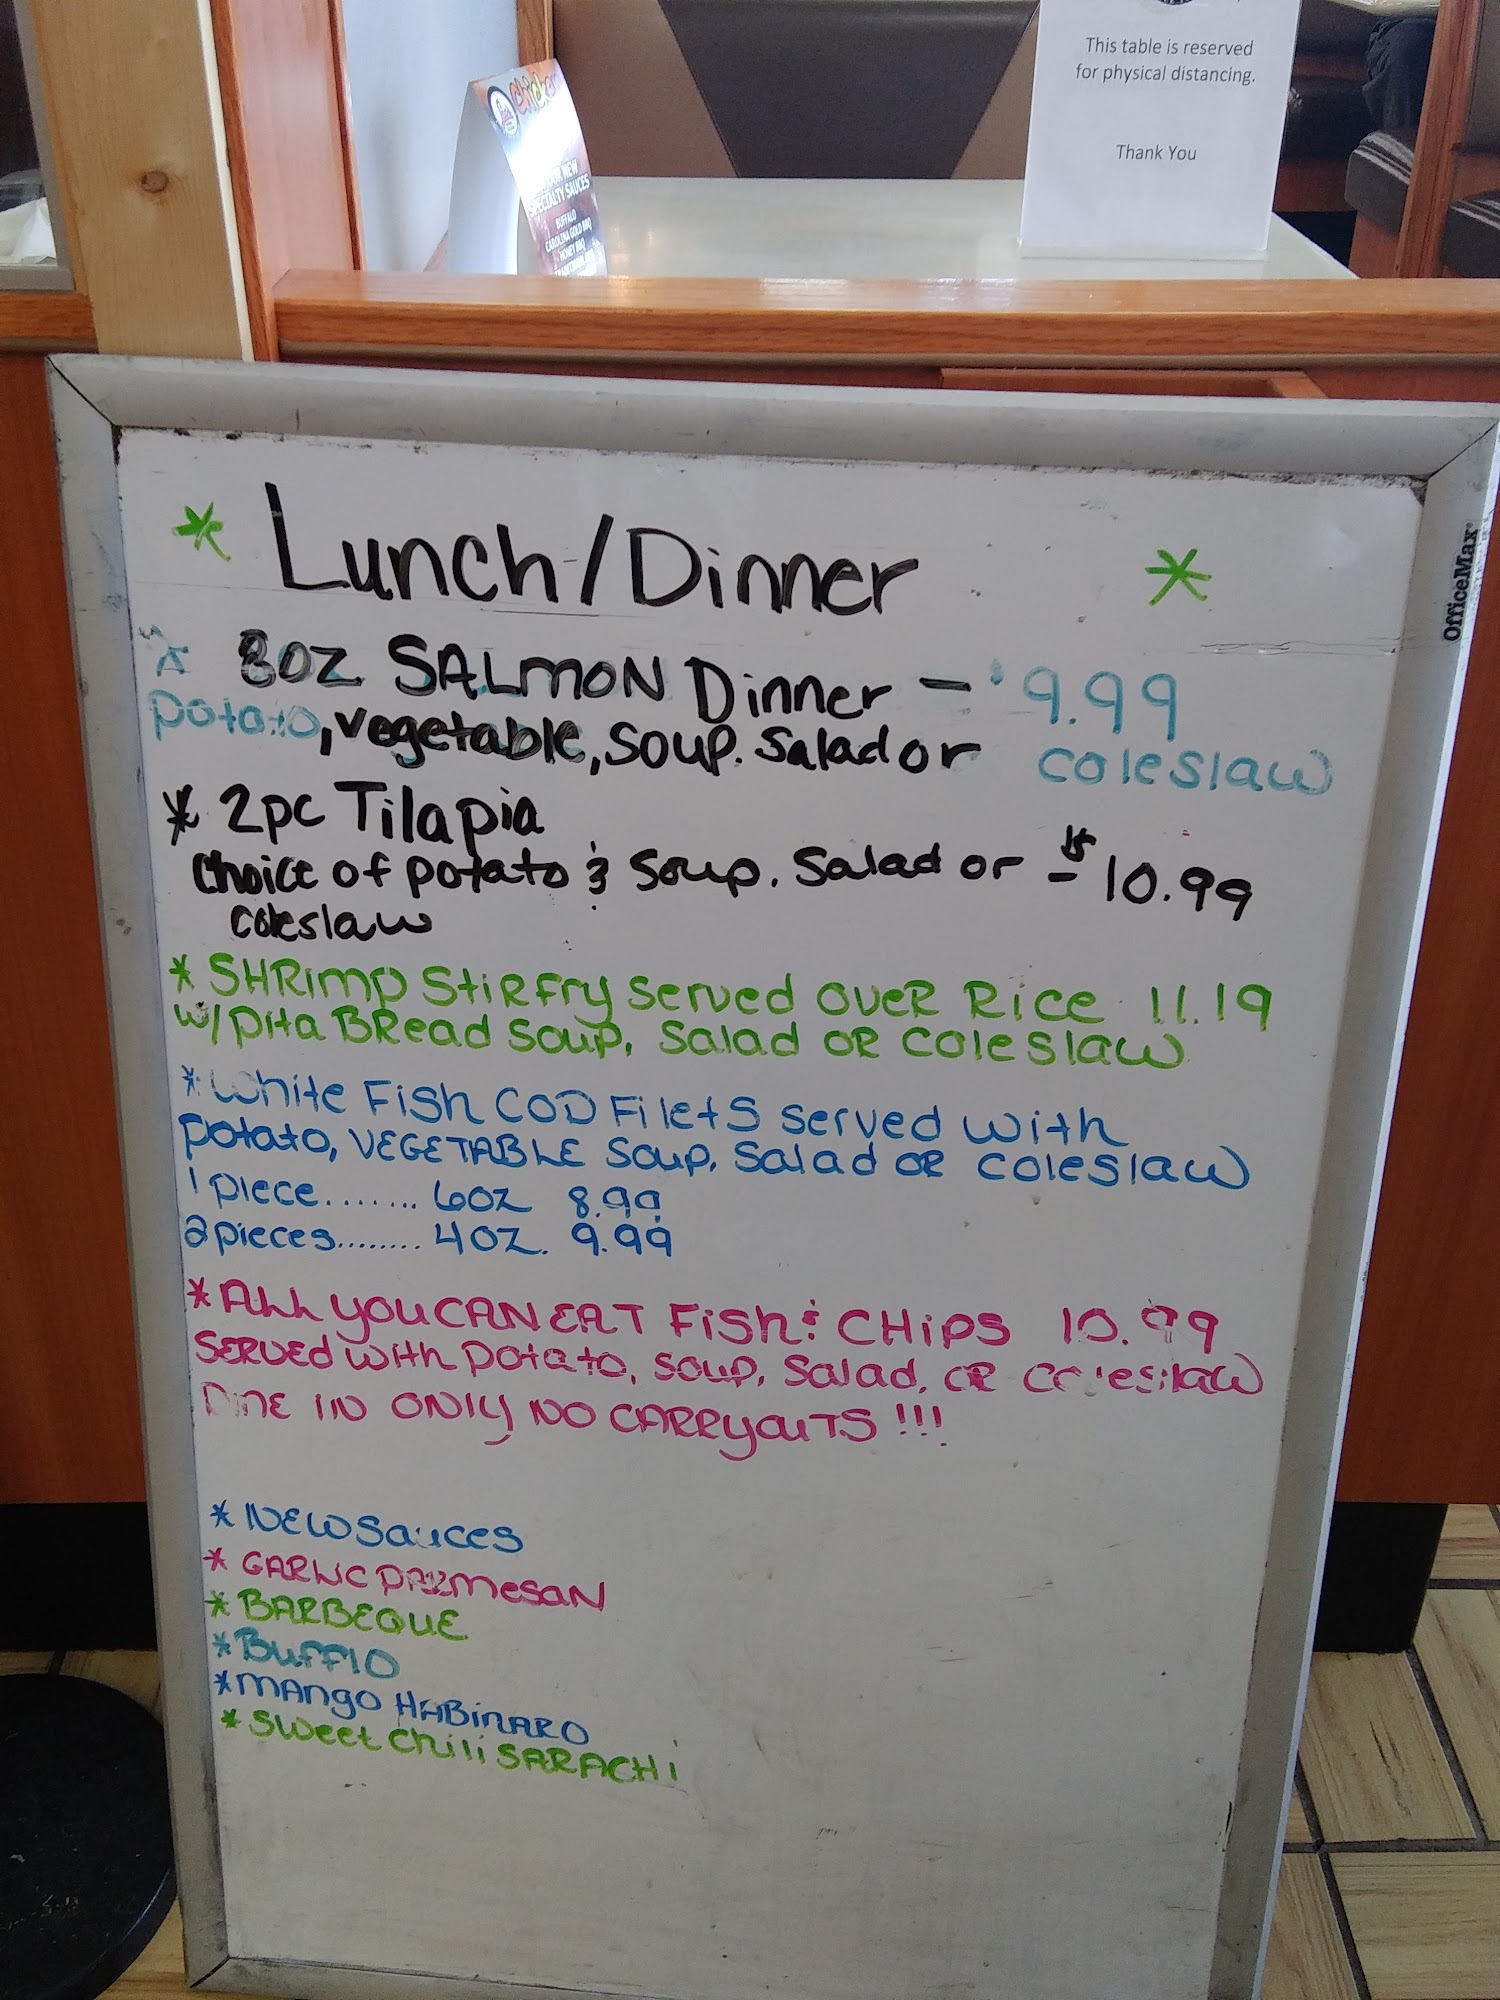 This table is reserved
for physical distancing.
Thank You
NEW
SPECIALTY SAUCES
BUFFALO
CAROLINA GOLD BBQ
HONEY BBQ
OfficeMax
* Lunch/Dinner *
* 8oz SALMON Dinner - $9.99
potato, vegetable, soup. salad or coleslaw
* 2pc Tilapia
Choice of potato & soup. salad or - $10.99
coleslaw
* SHRimp StiRFRy served oveR Rice 11.19
w/pita BRead soup, salad OR coleslaw
* White Fish COD Filets served with
potato, VEGETABLE soup, salad OR coleslaw
1 piece........ 6oz 8.99
2 pieces........ 4oz. 9.99
* ALL YOU CAN EAT Fish & CHips 10.99
SERVED with potato, soup, salad, OR coleslaw
DINE IN ONLY NO CARRYOUTS !!!
* NEW Sauces
* GARLIC PARMESAN
* BARBEQUE
* Bufflo
* MANGO HABINARO
* Sweet Chili SARACHI